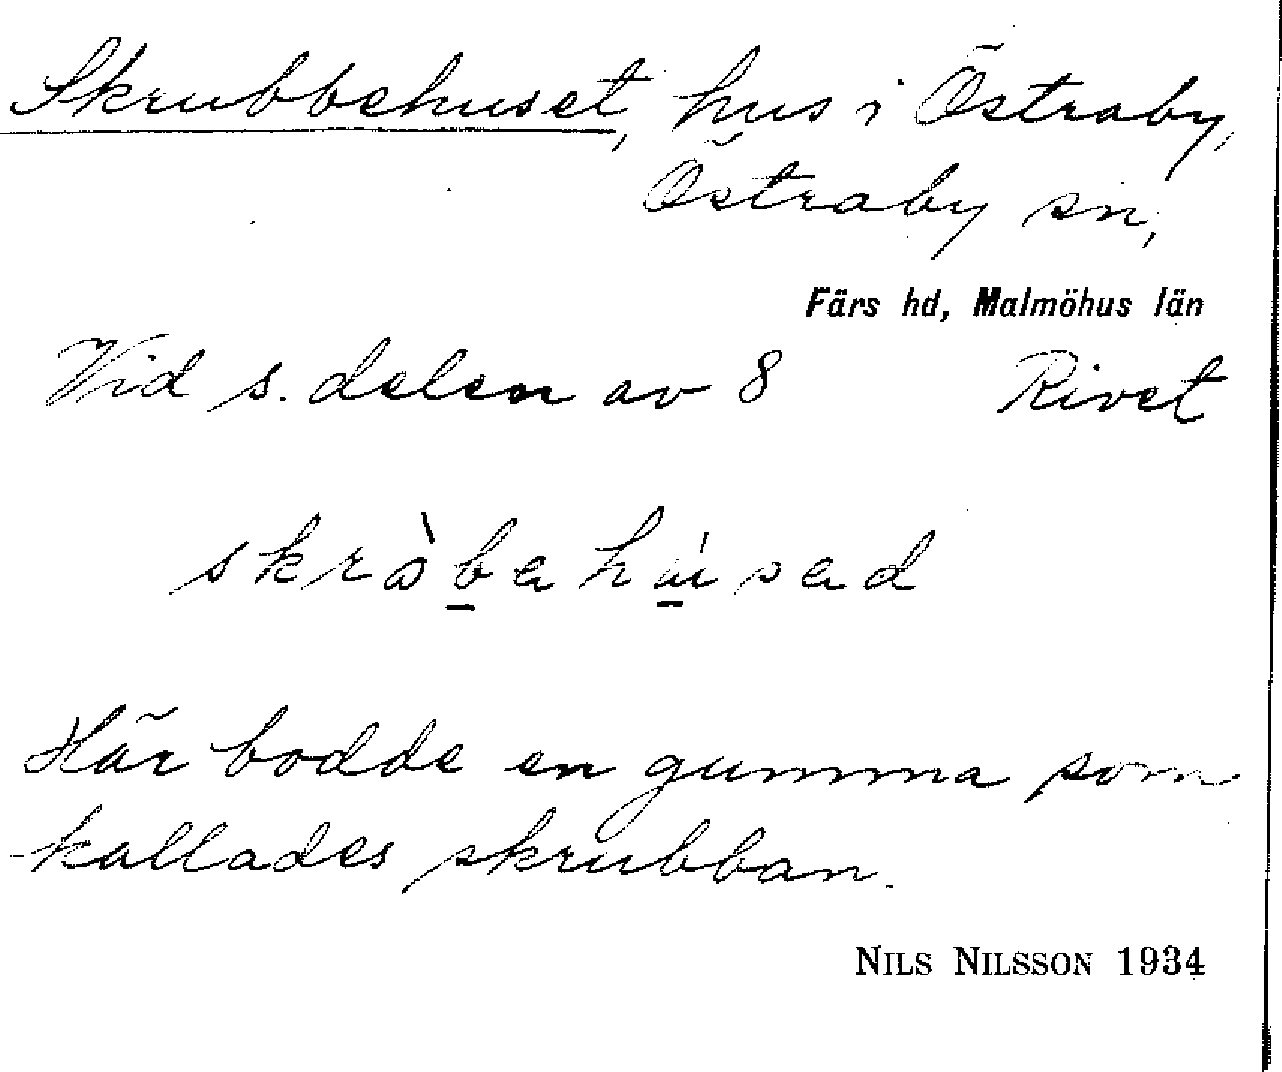 Skrubbehuset, hus i Östraby,
Östraby sn,
Färs hd, Malmöhus län
Vid s. delen av 8 Rivet
Här bodde en gumma som
kallades skrubban.
NILS NILSSON 1934